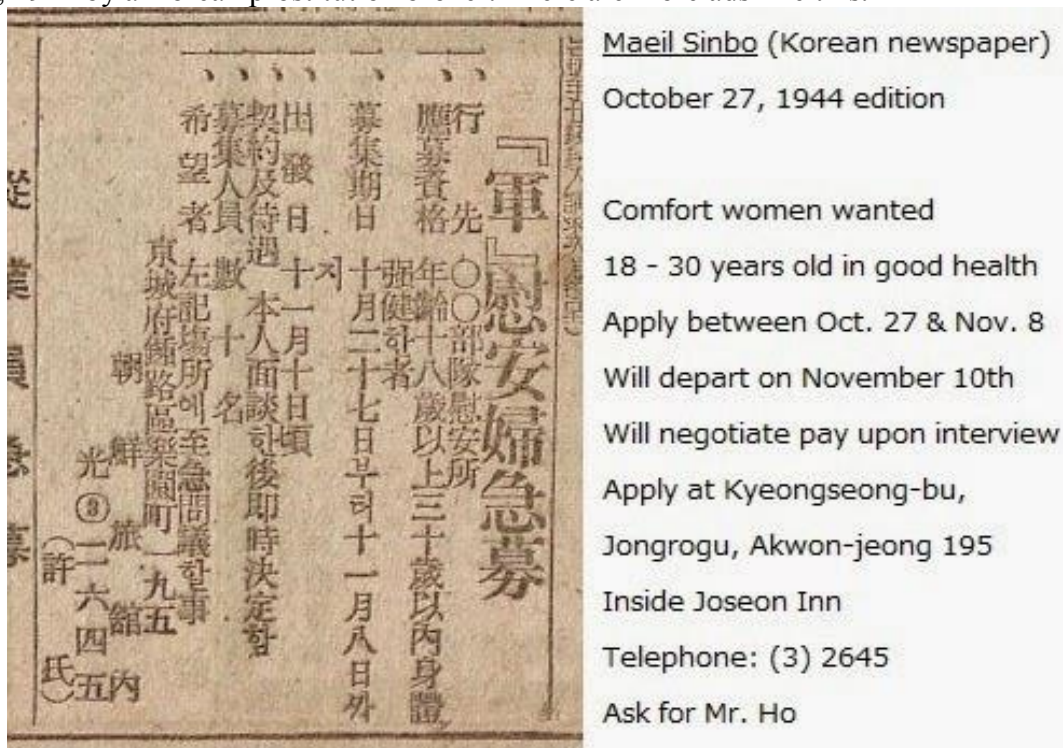 『軍』慰安婦急募
一、行先 ○○部隊慰安所
一、應募資格 年齡十八歲以上三十歲以內身體
强健한者
一、募集期日 十月二十七日부터十一月八日까
지
一、出發日 十一月十日頃
一、契約及待遇 本人面談한後即時決定함
一、募集人員 數十名
一、希望者 左記場所에至急問議할事
京城府鍾路區樂園町一九五
朝鮮旅館內
光③二六四五
(許氏)
從業員急募
Maeil Sinbo (Korean newspaper)
October 27, 1944 edition
Comfort women wanted
18 - 30 years old in good health
Apply between Oct. 27 & Nov. 8
Will depart on November 10th
Will negotiate pay upon interview
Apply at Kyeongseong-bu,
Jongrogu, Akwon-jeong 195
Inside Joseon Inn
Telephone: (3) 2645
Ask for Mr. Ho